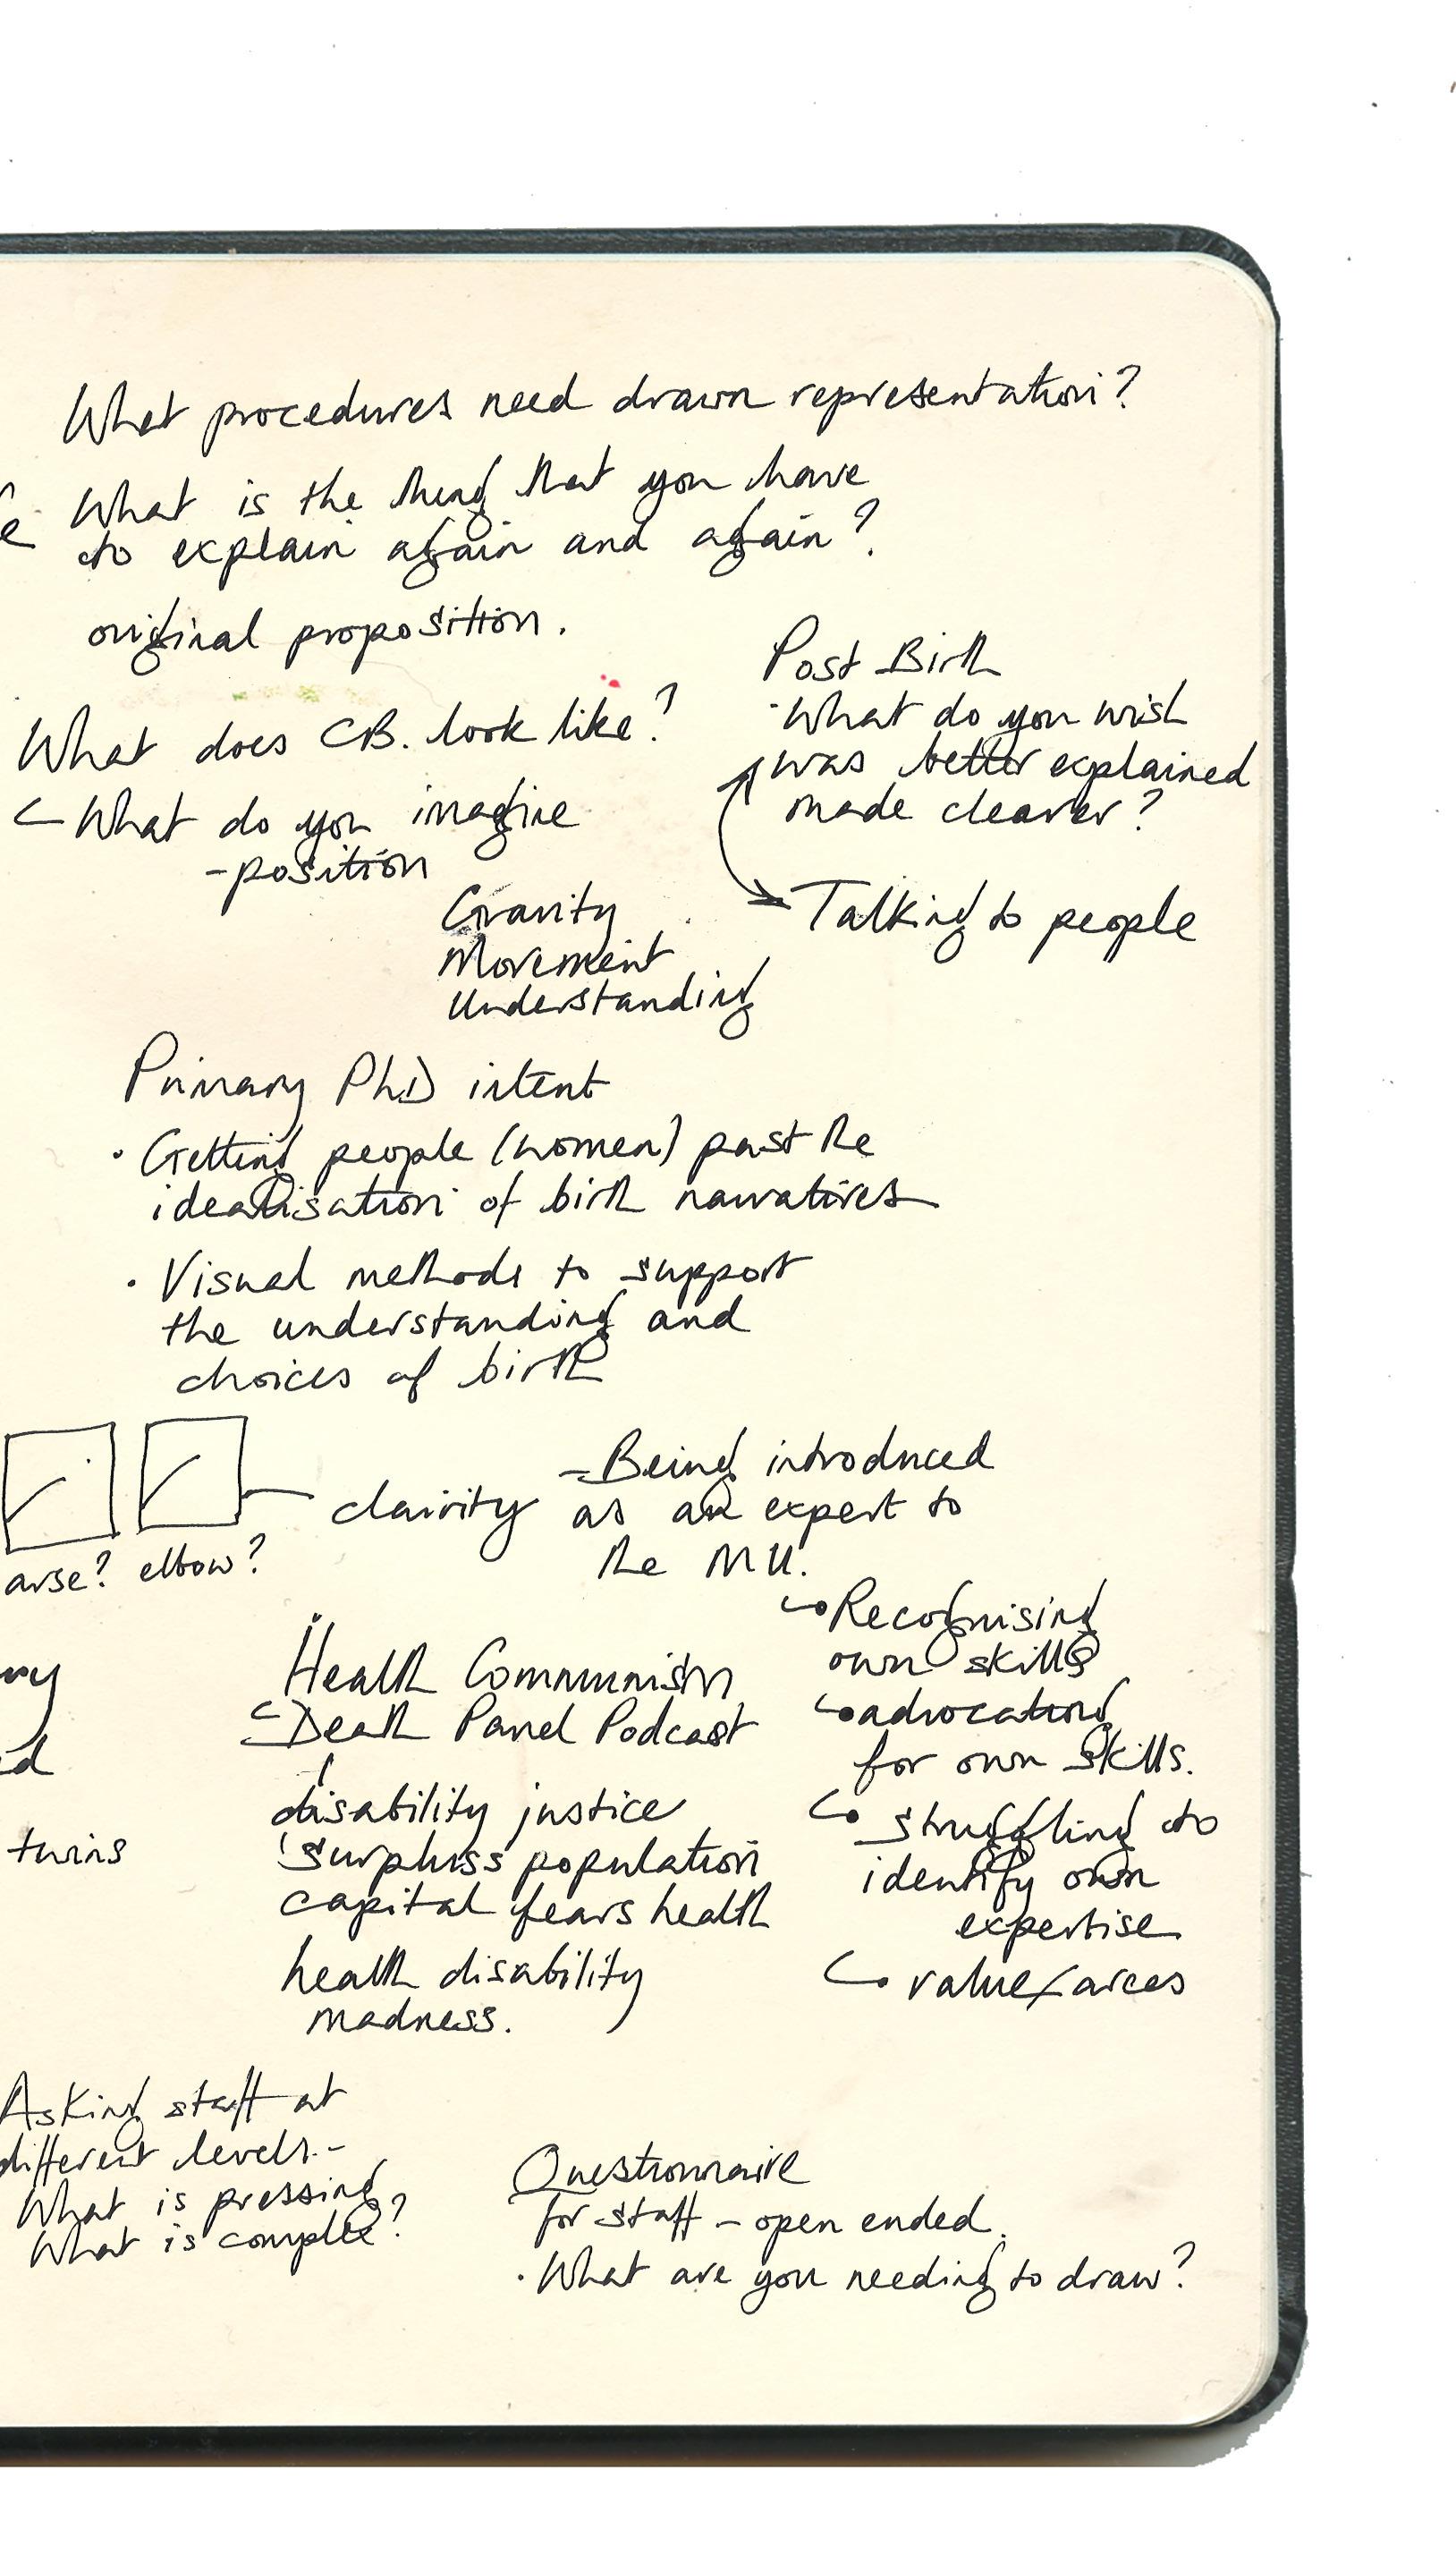 What procedures need drawn representation?
What is the thing that you have
to explain again and again?
original proposition.
What does CB. look like?
What do you imagine
-position
Gravity
Movement
Understanding
Post Birth
What do you wish
was better explained
made clearer?
Talking to people
Primary PhD intent
· Getting people (women) past the
idealisation of birth narratives
· Visual methods to support
the understanding and
choices of birth
arse? elbow?
clairity
- Being introduced
as an expert to
the MU.
Recognising
own skills
advocating
for own skills.
struggling to
identify own
expertise
value/
Health Communism
Death Panel Podcast
disability justice
surpluss population
capital fears health
health disability
madness.
twins
Asking staff at
different levels -
What is pressing
What is complex?
Questionnaire
for staff - open ended.
· What are you needing to draw?